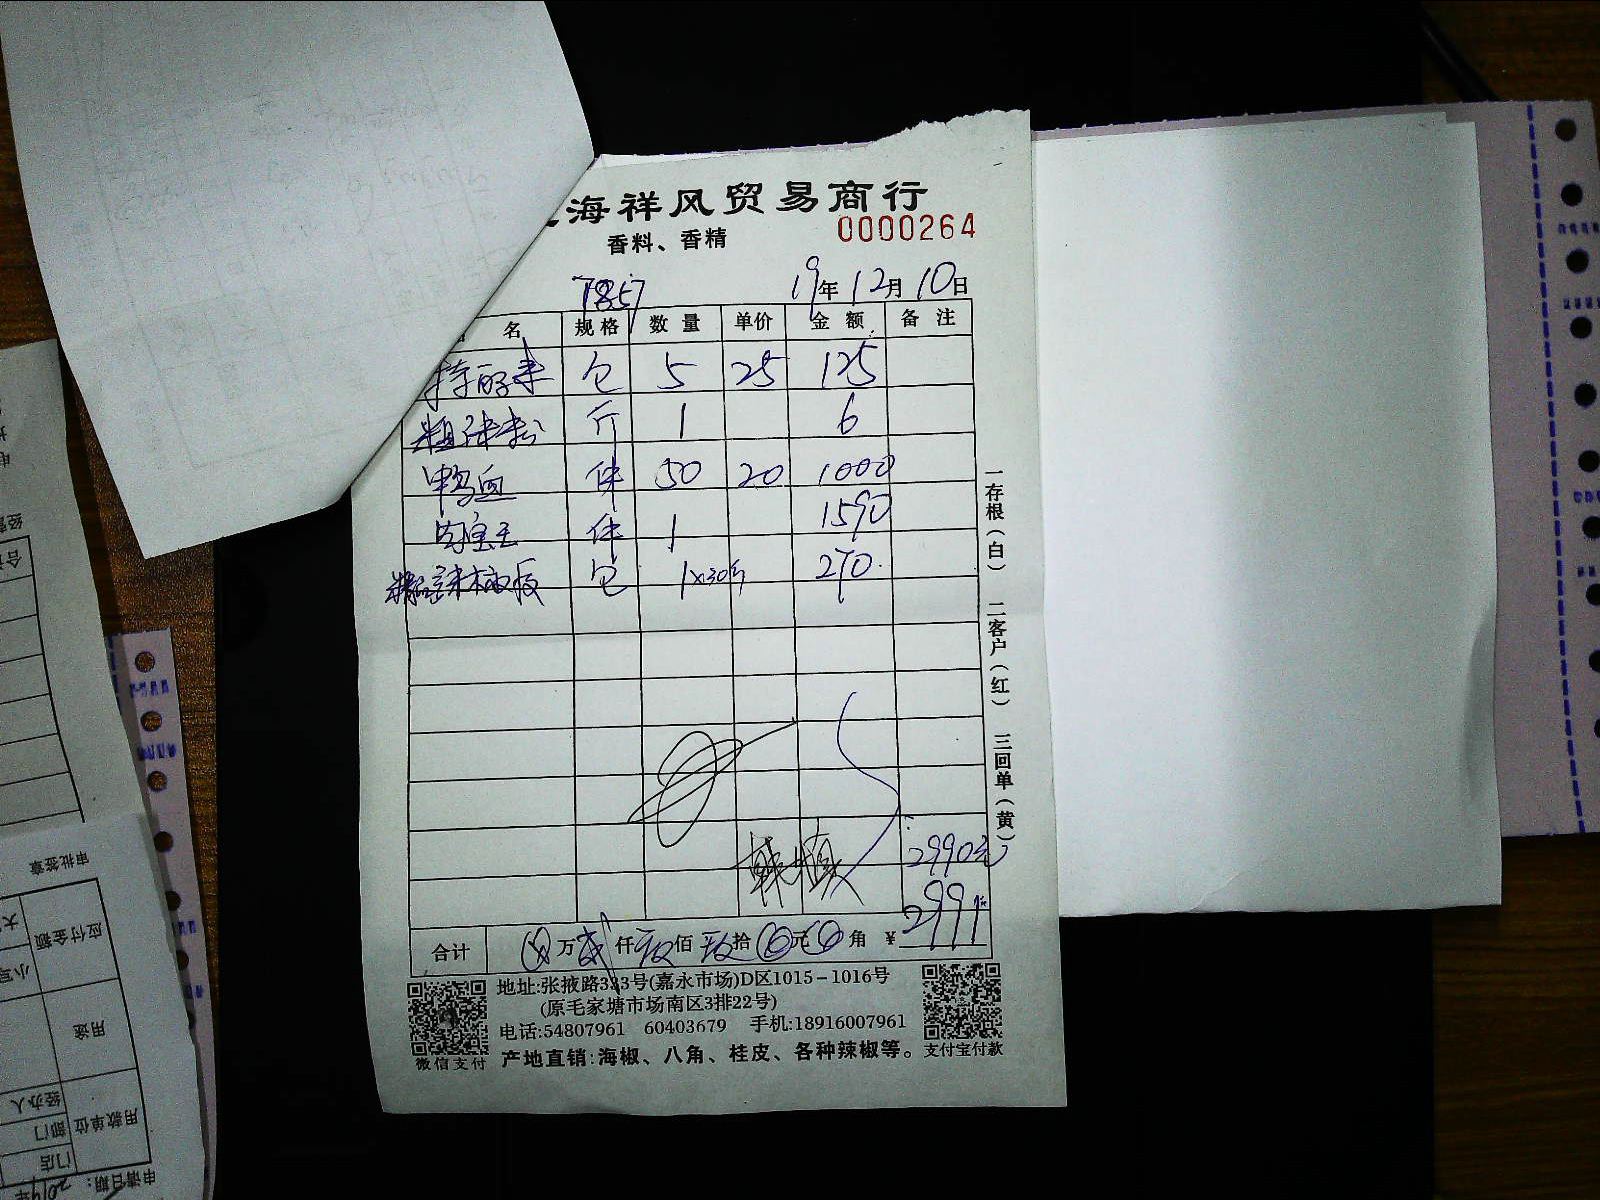 海祥风贸易商行
香料、香精
0000264
7857
19年12月10日
名 规格 数量 单价 金额 备注
包 5 25 125
斤 1 6
鸭血 件 50 20 1000
肉宝王 件 1 1590
包 1x30斤 270
一存根(白) 二客户(红) 三回单(黄)
2990元
合计 万 仟 佰 拾 元 角 ¥ 2991
地址:张掖路333号(嘉永市场)D区1015-1016号
(原毛家塘市场南区3排22号)
电话:54807961 60403679 手机:18916007961
产地直销:海椒、八角、桂皮、各种辣椒等。
微信支付
支付宝付款
审批签章
应付金额
用途
用款单位
经办人
部门
门店
申请日期: